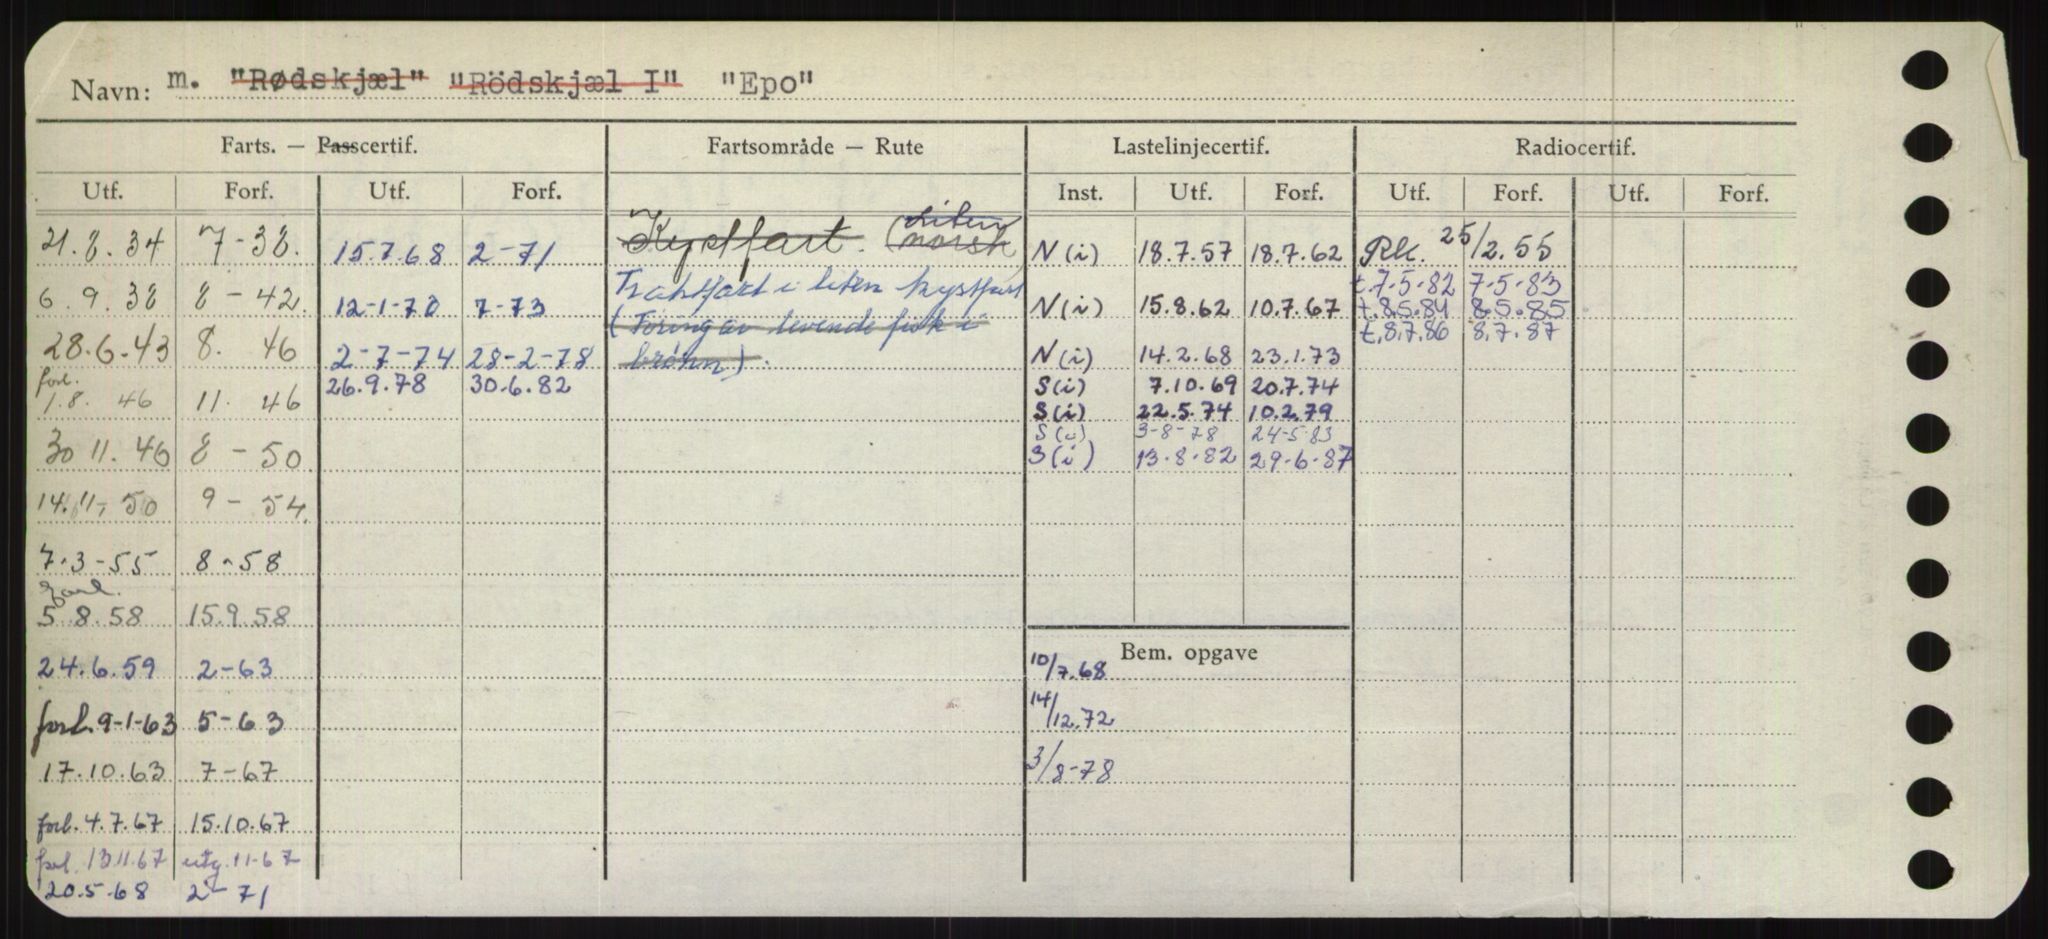 Navn: m. "Rødskjæl" "Rödskjæl I" "Epo"
Farts. — Passcertif. Fartsområde — Rute Lastelinjecertif. Radiocertif.
Utf. Forf. Utf. Forf. Inst. Utf. Forf. Utf. Forf. Utf. Forf.
21.8.34 7-38. 15.7.68 2-71 Kystfart. (norsk liten N(i) 18.7.57 18.7.62 Rk. 25/2.55
t.7.5.82 7-5-83
6.9.38 8-42. 12-1-70 7-73 Fraktfart i liten kystfart N(i) 15.8.62 10.7.67 t.8.5.84 8.5.85
(Föring av levende fisk i t.8.7.86 8.7.87
28.6.43 8. 46 2-7-74 28-2-78 brönn). N(i) 14.2.68 23.1.73
forl. 26.9.78 30.6.82 S(i) 7.10.69 20.7.74
1.8. 46 11. 46 S(i) 22.5.74 10.2.79
S(i) 3-8-78 24-5-83
30 11. 46 8-50 S(i) 13.8.82 29.6.87
14.11.50 9-54.
7.3-55 8-58
forl.
5.8.58 15.9.58
Bem. opgave
24.6.59 2-63 10/7.68
forl. 9-1-63 5-63 14/12.72
17.10.63 7-67 3/8-78
forl. 4.7.67 15.10.67
forl. 13.11.67 utg. 11-67
20.5.68 2-71